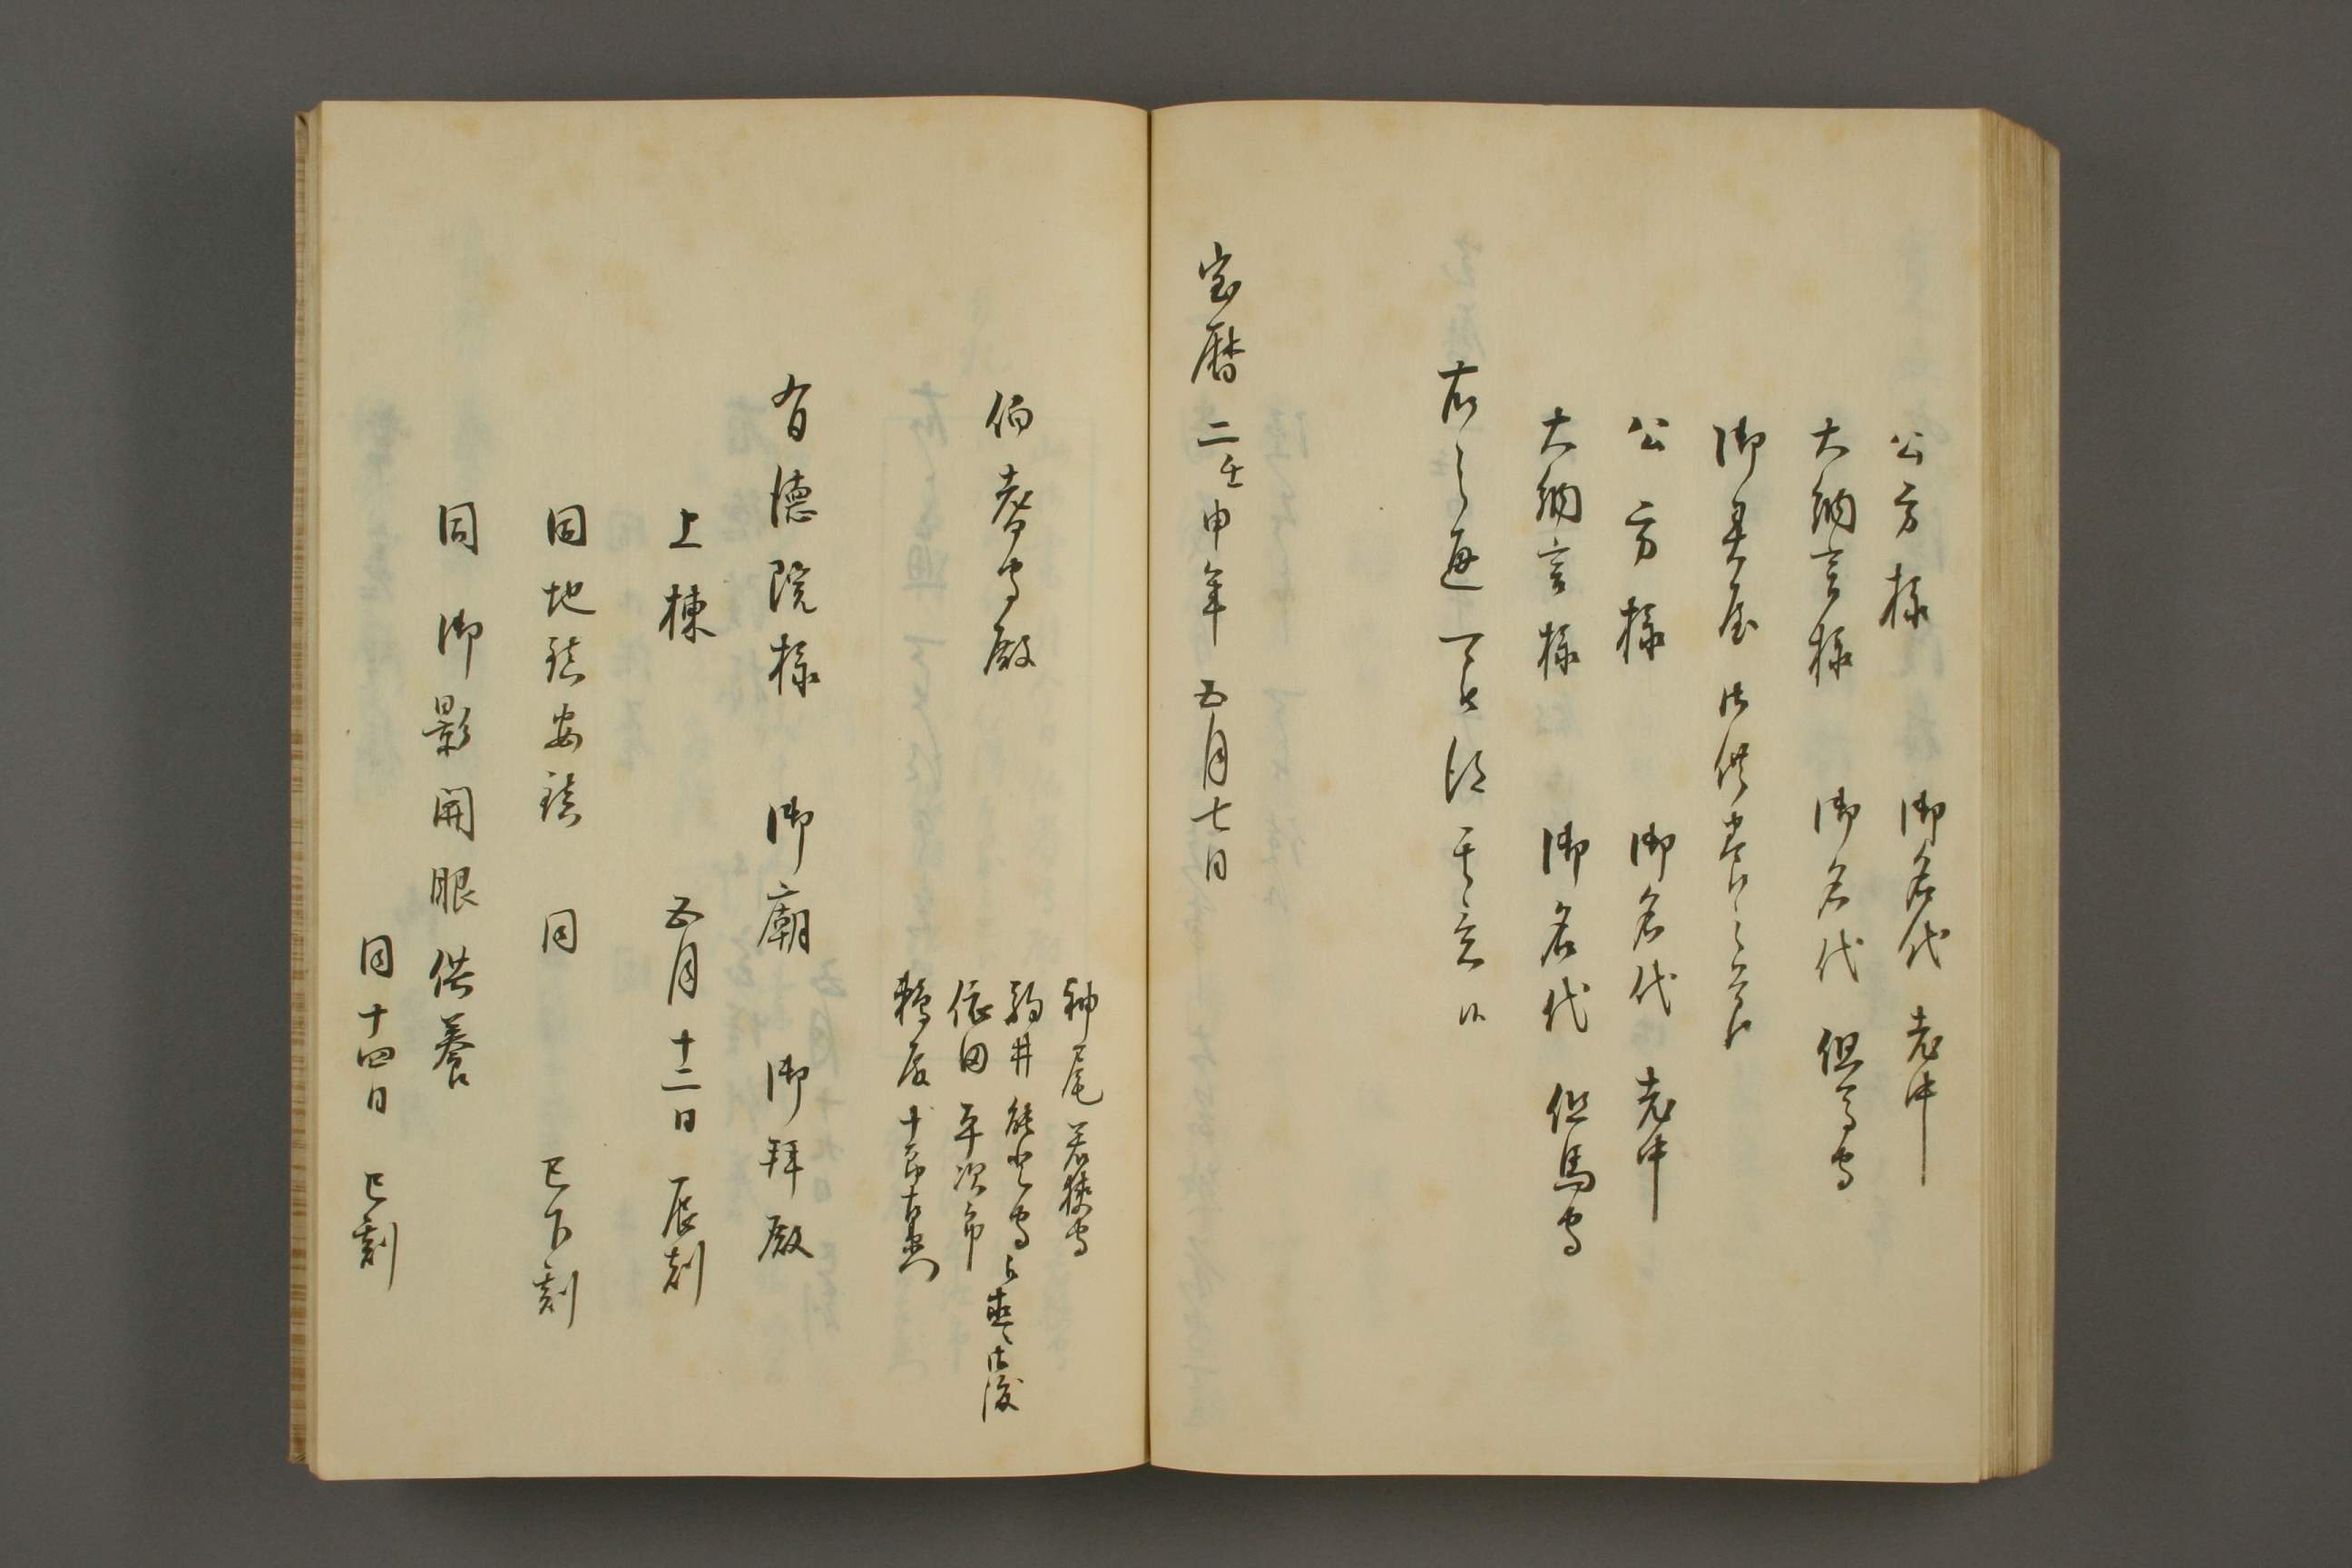 公方様 御名代 老中
大納言様 御名代 但馬守
御霊屋御供養之節
公方様 御名代 老中
大納言様 御名代 但馬守
右之通可被得其意候
宝暦二壬申年五月七日
伯耆守殿
神尾若狭守
駒井能登守
依田平次郎
十郎右衛門
有徳院様 御廟 御拝殿
上棟 五月十二日 辰刻
同地鎮安鎮 同 巳下刻
同 御影開眼供養
同十四日 巳刻